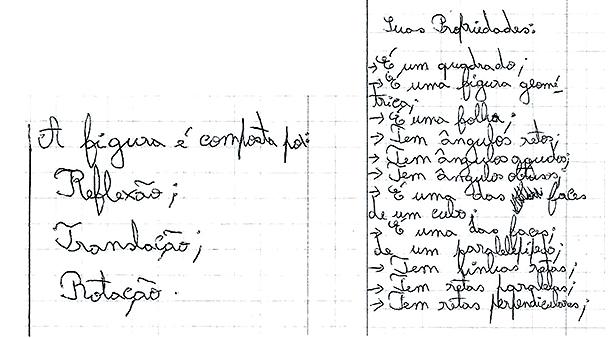 A figura é composta por:
Reflexão;
Translação;
Rotação.
Suas Propriedades:
→ É um quadrado;
→ É uma figura geomé-
trica;
→ É uma folha;
→ Tem ângulos retos;
→ Tem ângulos agudos;
→ Tem ângulos obtusos;
→ É uma das faces
de um cubo;
→ É uma das faces
de um paralelepípedo;
→ Tem linhas retas;
→ Tem retas paralelas;
→ Tem retas perpendiculares;